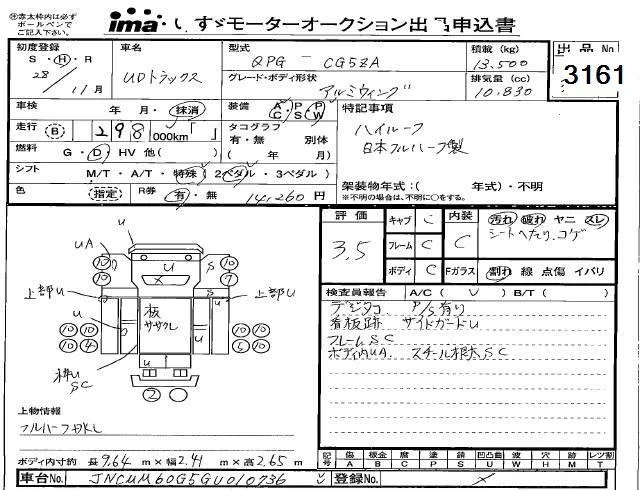 ㊟赤太枠内は必ず
ボールペンで
ご記入下さい。
ima・いすゞモーターオークション出品申込書
初度登録 S・Ⓗ・R 28/11月
車名 UDトラックス
型式 QPG - CG5ZA
積載 (kg) 13,500
出品No 3161
グレード・ボディ形状 アルミウィング
排気量 (cc) 10,830
車検 年・月・抹消
装備 A/C・P/S・P/W
特記事項
ハイルーフ
日本フルハーフ製
走行 (B) 298,000km「 」
タコグラフ 有・無 別体 ( 年 月)
燃料 G・Ⓓ・HV 他( )
シフト M/T・A/T・特殊 (2ペダル・3ペダル)
架装物年式:( 年式)・不明
※不明の場合は、不明に○をする。
色 指定
R券 有・無 14,260円
評価 3.5
キャブ C
フレーム C
ボディ C
内装 C
汚れ 破れ ヤニ スレ
シートへたり、コゲ
Fガラス 割れ 線 点傷 イバリ
検査員報告 A/C( ∨ ) B/T( )
デジタコ P/S有り
看板跡 サイドガードU
フレームSC
ボディ内UA スチール根太SC
U
UA
U
S
10
10
10
7
×
U
上部U
S
上部U
板
ササクレ
U
U
10 10
10 4
10 10
6 10
U
枠U
SC
2
上物情報
フルハーフ
ボディ内寸約 長9.64m×幅2.41m×高2.65m
記号 傷A 板金B 腐C 塗P 錆S 凹凸曲U 波W 穴H 跡M レツ割T
車台No. JNCUM60G5GU010736
登録No.